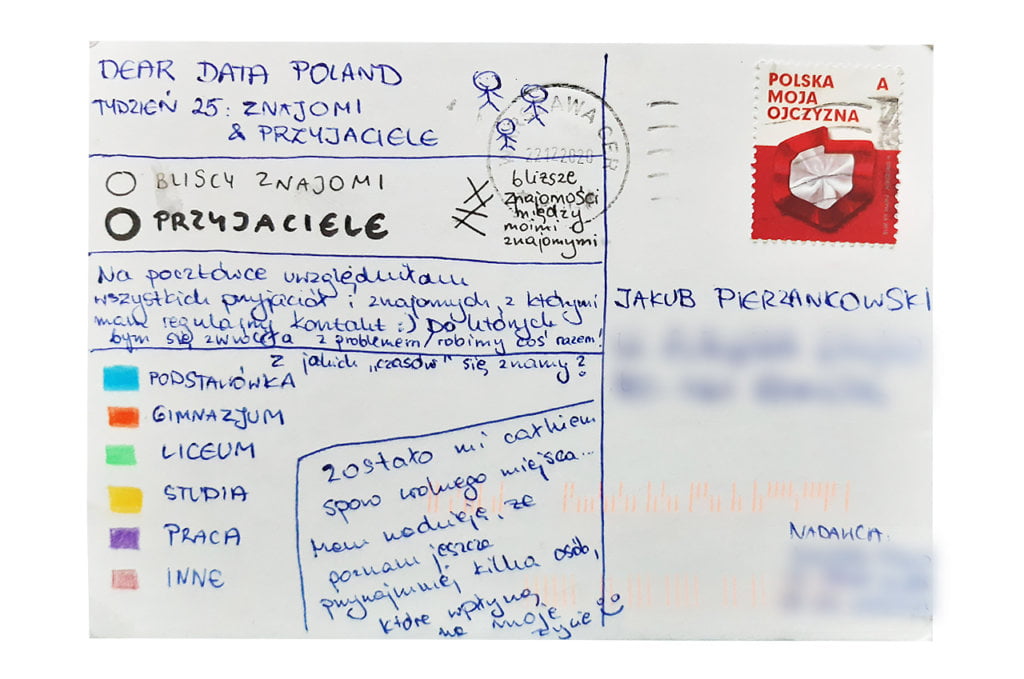 DEAR DATA POLAND
TYDZIEŃ 25: ZNAJOMI
& PRZYJACIELE
BLISCY ZNAJOMI
PRZYJACIELE
bliższe
znajomości
między
moimi
znajomymi
Na pocztówce uwzględniłam
wszystkich przyjaciół i znajomych, z którymi
mam regularny kontakt :) Do których
bym się zwróciła z problemem/robimy coś razem!
z jakich "czasów" się znamy?
PODSTAWÓWKA
GIMNAZJUM
LICEUM
STUDIA
PRACA
INNE
Zostało mi całkiem
sporo wolnego miejsca...
Mam nadzieję, że
poznam jeszcze
przynajmniej kilka osób,
które wpłyną
na moje
życie
WARSZAWA CER
22122020
POLSKA A
MOJA
OJCZYZNA
JAKUB PIERZANKOWSKI
NADAWCA: